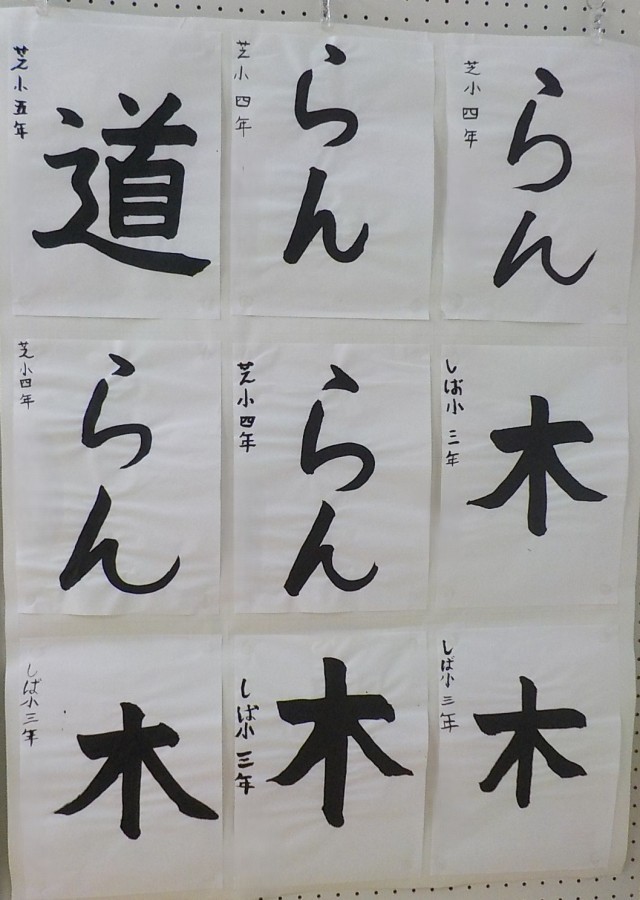 道
芝小五年
らん
芝小四年
らん
芝小四年
らん
芝小四年
らん
芝小四年
木
しば小三年
木
しば小三年
木
しば小三年
木
しば小三年